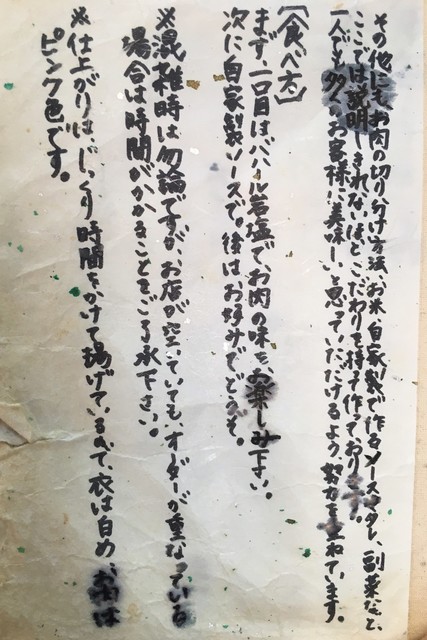 その他にもお肉の切り分け方法、お米、自家製で作るソースやタレ、副菜など、
ここでは説明しきれないほどこだわりを持って作っております。
一人でも多くのお客様に美味しいと思っていただけるよう努力を重ねています。
【食べ方】
まず、一口目はパハール岩塩で、お肉の味をお楽しみ下さい。
次に自家製ソースで。後はお好みでどうぞ。
※混雑時は勿論ですが、お店が空いていても、オーダーが重なっている
場合は時間がかかることをご了承下さい。
※仕上がりはじっくり時間をかけて揚げているので、衣は白め、お肉は
ピンク色です。